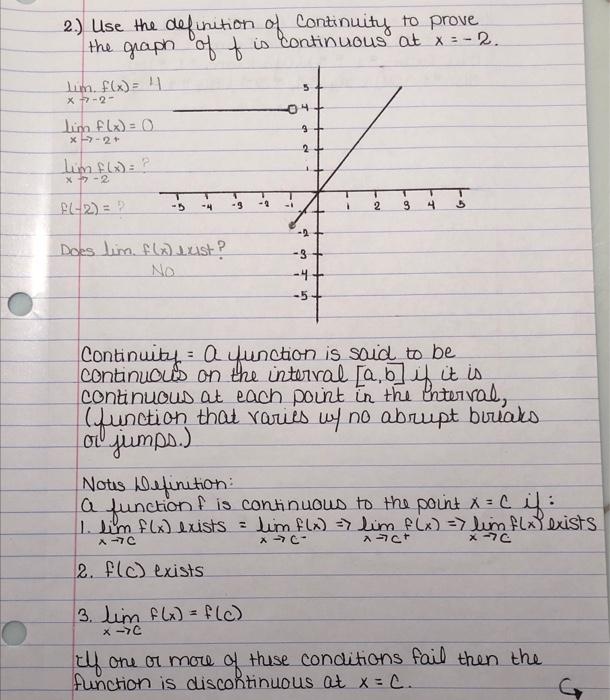 2.) Use the definition of Continuity to prove
the graph of f is continuous at x = -2.
lim. f(x) = 4
x → -2⁻
lim f(x) = 0
x → -2+
lim f(x) = ?
x → -2
f(-2) = ?
Does lim. f(x) exist?
No
5
4
3
2
1
-5 -4 -3 -2 -1 1 2 3 4 5
-2
-3
-4
-5
Continuity = a function is said to be
continuous on the interval [a,b] if it is
continuous at each point in the interval,
(function that varies w/ no abrupt breaks
or jumps.)
Notes Definition:
a function f is continuous to the point x = c if:
1. lim f(x) exists = lim f(x) => lim f(x) => lim f(x) exists
x→c x→c⁻ x→c⁺ x→c
2. f(c) exists
3. lim f(x) = f(c)
x→c
If one or more of these conditions fail then the
function is discontinuous at x = c.